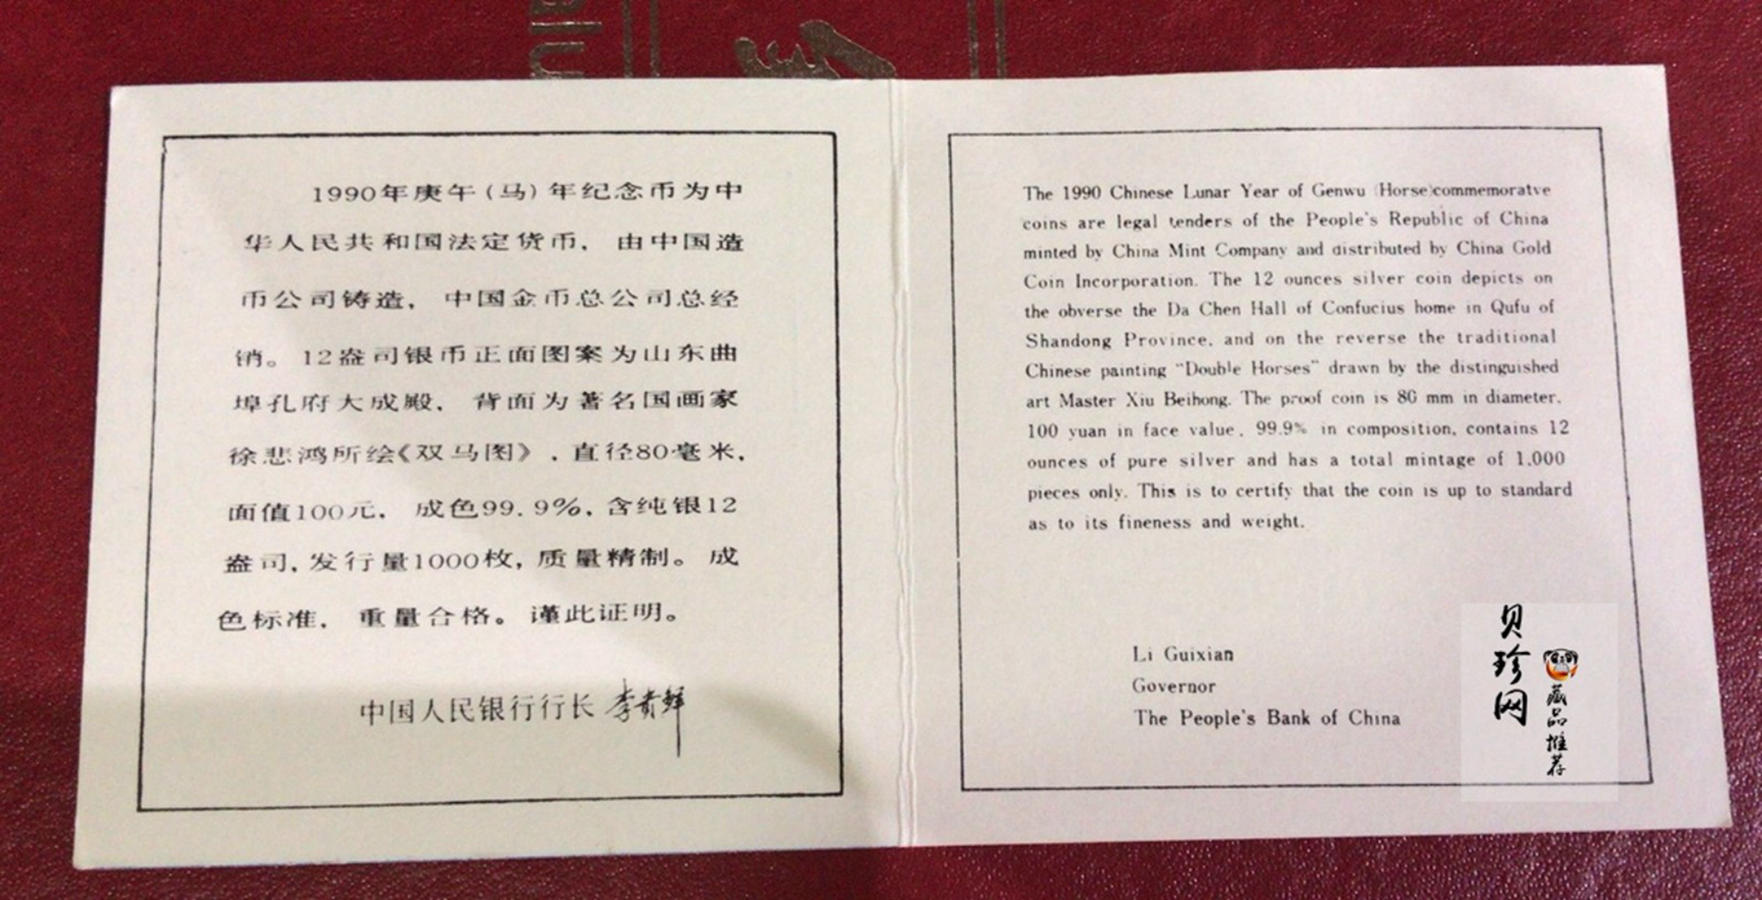 alu
1990年庚午(马)年纪念币为中
华人民共和国法定货币, 由中国造
币公司铸造, 中国金币总公司总经
销。12盎司银币正面图案为山东曲
埠孔府大成殿, 背面为著名国画家
徐悲鸿所绘《双马图》, 直径80毫米,
面值100元, 成色99.9%, 含纯银12
盎司, 发行量1000枚, 质量精制。成
色标准, 重量合格。谨此证明。
中国人民银行行长 李贵鲜
The 1990 Chinese Lunar Year of Genwu (Horse)commemoratve
coins are legal tenders of the People's Republic of China
minted by China Mint Company and distributed by China Gold
Coin Incorporation. The 12 ounces silver coin depicts on
the obverse the Da Chen Hall of Confucius home in Qufu of
Shandong Province, and on the reverse the traditional
Chinese painting "Double Horses" drawn by the distinguished
art Master Xiu Beihong. The proof coin is 80 mm in diameter,
100 yuan in face value, 99.9% in composition, contains 12
ounces of pure silver and has a total mintage of 1,000
pieces only. This is to certify that the coin is up to standard
as to its fineness and weight.
Li Guixian
Governor
The People's Bank of China
贝珍网
藏品推荐